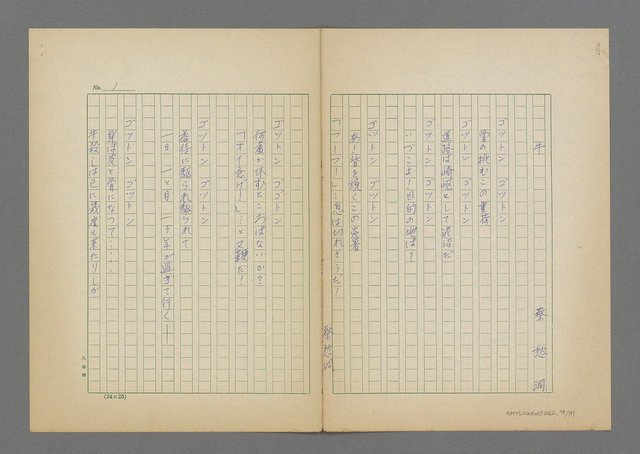 牛
蔡 愁 洞
ゴツトン ゴツトン
骨の挑むこの重荷
ゴツトン ゴツトン
道路は崎嶇として泥沼だ
ゴツトン ゴツトン
いづこよ！目的の地は？
ゴツトン ゴツトン
あゝ背を焼くこの炎暑
「フーフー」…息は切れさうだ！
蔡愁洞
ゴツトン ゴツトン
何者か休むところはないか？
「オイ急げ！」…と又鞭だ！
ゴツトン ゴツトン
虐待に駆られ駆られて
一日 一と月 一ヶ年が過ぎて行く——
ゴツトン ゴツトン
身は皮と骨になつて……
牛殺しは已に幾度も来たりしが
No. 1
(24×25)